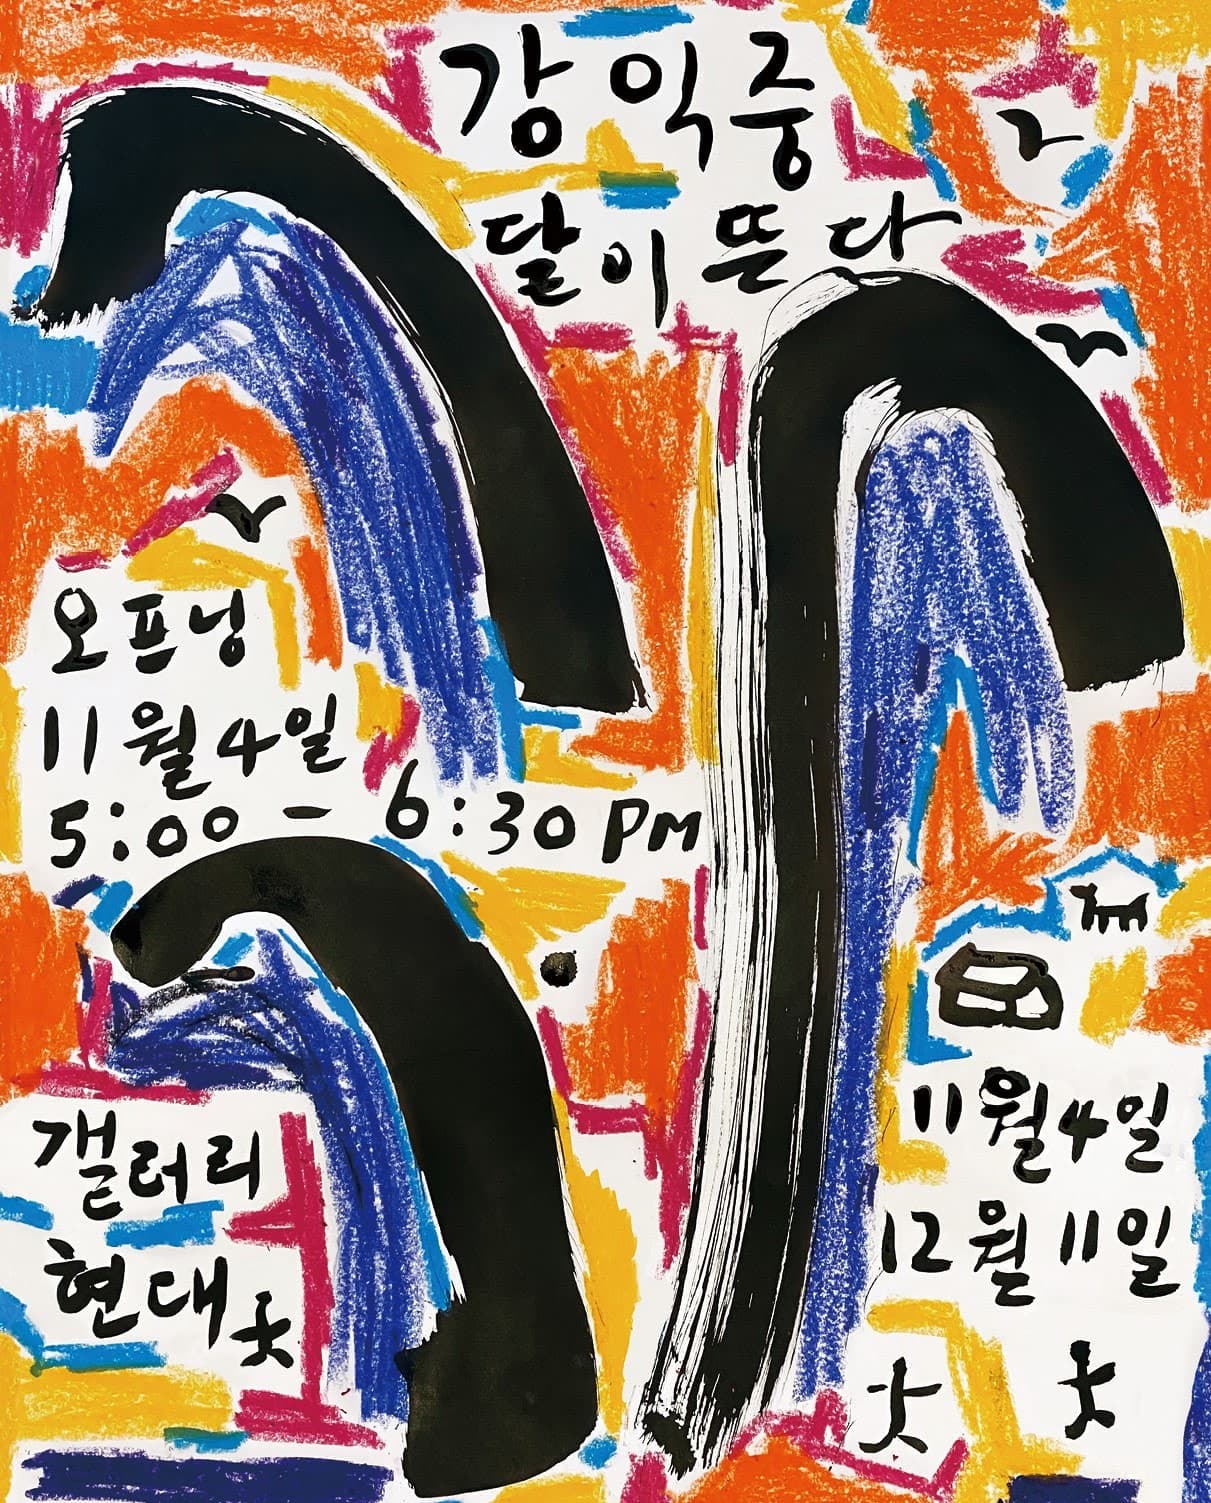 강익중
달이 뜬다
오프닝
11월 4일
5:00 - 6:30 PM
갤러리
현대
11월 4일
12월 11일